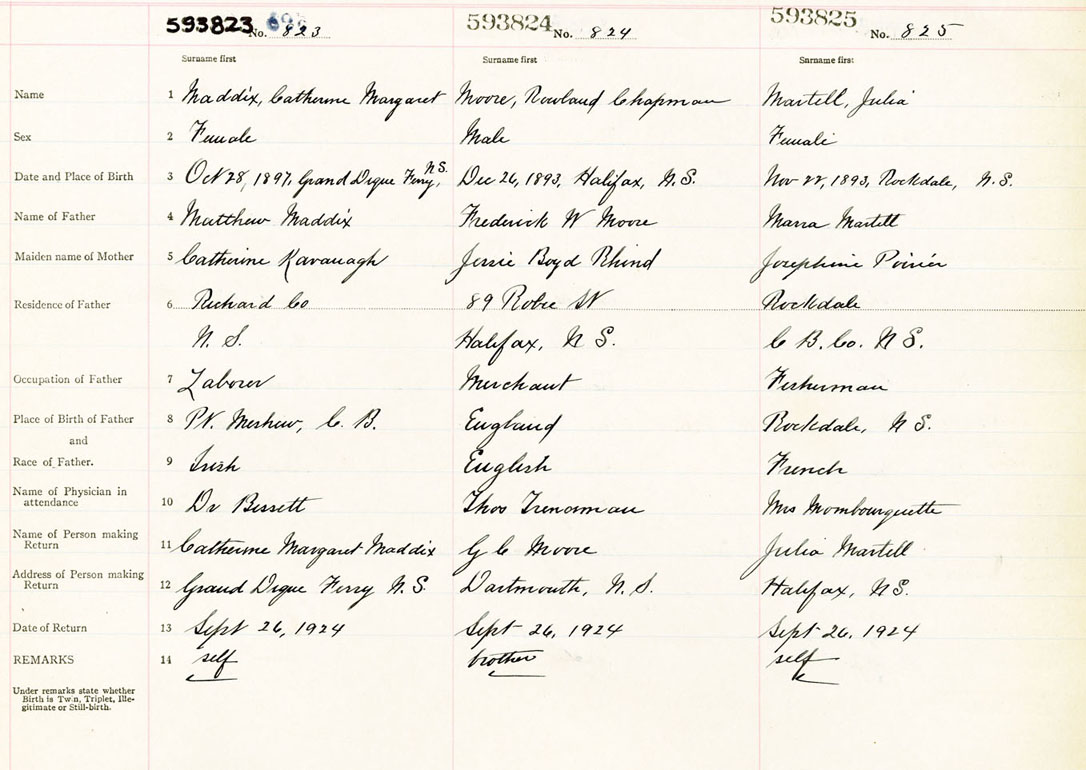 593823 No. 823 593824 No. 824 593825 No. 825
Surname first Surname first Surname first
Name 1 Maddix, Catherine Margaret Moore, Rowland Chapman Martell, Julia
Sex 2 Female Male Female
Date and Place of Birth 3 Oct 28, 1897, Grand Digue Ferry, N.S. Dec 26, 1893, Halifax, N.S. Nov 22, 1893, Rockdale, N.S.
Name of Father 4 Matthew Maddix Frederick W Moore Martell
Maiden name of Mother 5 Catherine Kavanagh Jessie Boyd Rhind Josephine Poirier
Residence of Father 6 Richard Co 89 Robie St Rockdale
N. S. Halifax, N S. C B. Co. N S.
Occupation of Father 7 Laborer Merchant Fisherman
Place of Birth of Father 8 Pt. C. B. England Rockdale, N S.
and
Race of Father. 9 Irish English French
Name of Physician in
attendance 10 Dr Bissett Thos Trenaman Mrs Mombourquette
Name of Person making
Return 11 Catherine Margaret Maddix G C Moore Julia Martell
Address of Person making
Return 12 Grand Digue Ferry N.S. Dartmouth, N. S. Halifax, N S.
Date of Return 13 Sept 26, 1924 Sept 26, 1924 Sept 26, 1924
REMARKS 14 self brother self
Under remarks state whether
Birth is Twin, Triplet, Ille-
gitimate or Still-birth.